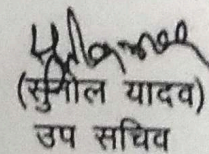 (सुशील यादव)
उप सचिव